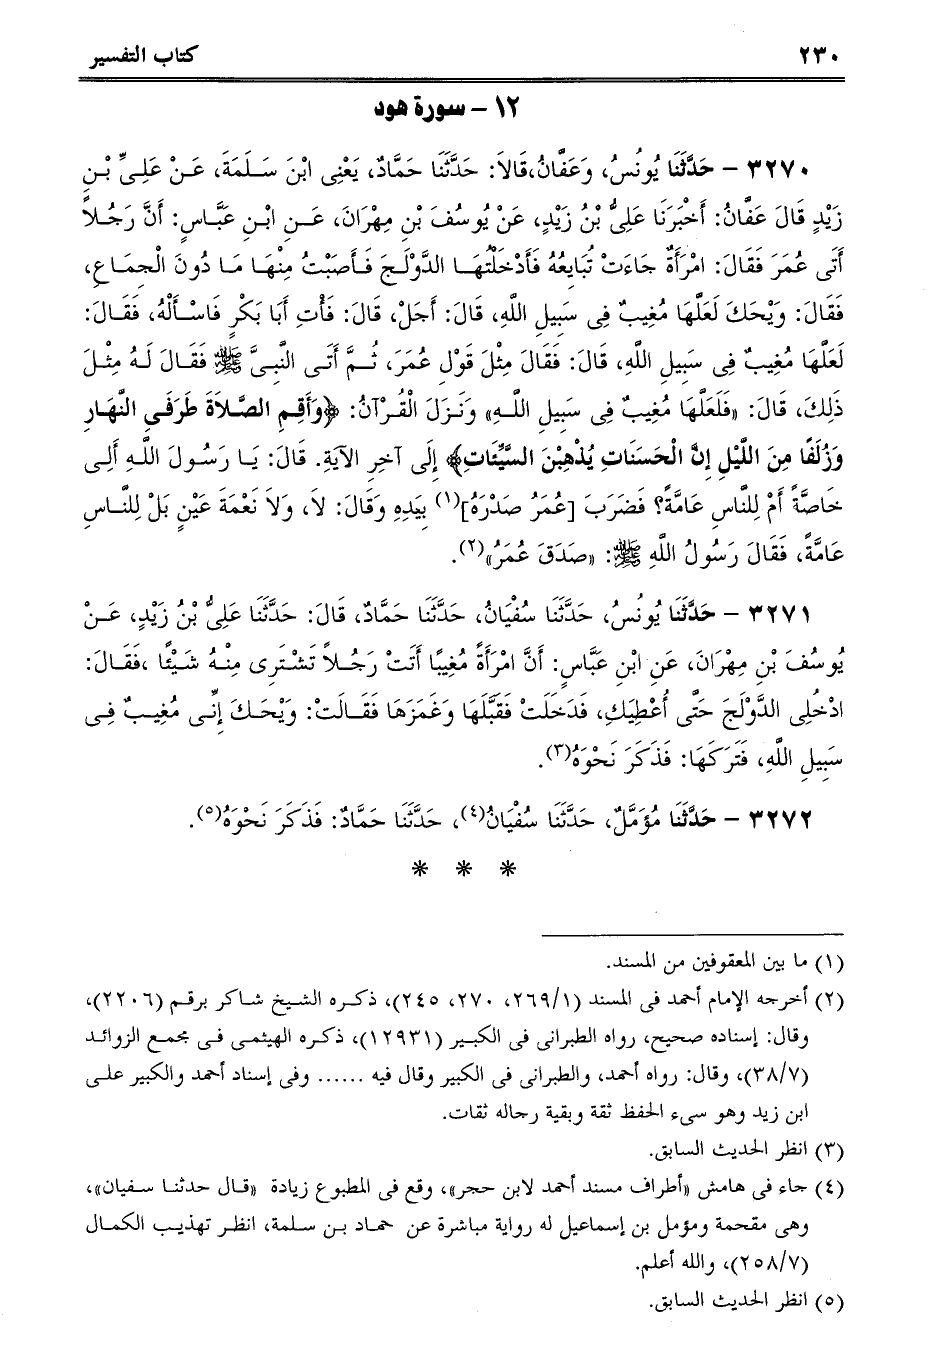 ٢٣٠ كتاب التفسير
١٢ - سورة هود
٣٢٧٠ - حَدَّثَنَا يُونُسُ، وَعَفَّانُ،قَالاَ: حَدَّثَنَا حَمَّادٌ، يَعْنِى ابْنَ سَـلَمَةَ، عَـنْ عَلِـىِّ بْـنِ
زَيْدٍ قَالَ عَفَّانُ: أَخْبَرَنَا عَلِىُّ بْنُ زَيْدٍ، عَنْ يُوسُفَ بْنِ مِهْرَانَ، عَـنِ ابْـنِ عَبَّاسٍ: أَنَّ رَجُـلاً
أَتَى عُمَرَ فَقَالَ: امْرَأَةٌ جَاءَتْ تُبَايِعُهُ فَأَدْخَلْتُهَـا الدَّوْلَـجَ فَـأَصَبْتُ مِنْهَـا مَـا دُونَ الْجِمَـاعِ،
فَقَالَ: وَيْحَكَ لَعَلَّهَا مُغِيبٌ فِى سَبِيلِ اللَّهِ، قَالَ: أَجَلْ، قَالَ: فَأْتِ أَبَا بَكْرٍ فَاسْـأَلْهُ، فَقَـالَ:
لَعَلَّهَا مُغِيبٌ فِى سَبِيلِ اللَّهِ، قَالَ: فَقَالَ مِثْلَ قَوْلِ عُمَرَ، ثُـمَّ أَتَى النَّبِىَّ ﷺ فَقَالَ لَهُ مِثْـلَ
ذَلِكَ، قَالَ: «فَلَعَلَّهَا مُغِيبٌ فِى سَبِيلِ اللَّـهِ» وَنَـزَلَ الْقُـرْآنُ: ﴿وَأَقِمِ الصَّلاَةَ طَرَفَىِ النَّهَارِ
وَزُلَفًا مِنَ اللَّيْلِ إِنَّ الْحَسَنَاتِ يُذْهِبْنَ السَّيِّئَاتِ﴾ إِلَى آخِرِ الآيَةِ. قَالَ: يَـا رَسُـولَ اللَّـهِ أَلِـى
خَاصَّةً أَمْ لِلنَّاسِ عَامَّةً؟ فَضَرَبَ [عُمَرُ صَدْرَهُ](١) بِيَدِهِ وَقَالَ: لاَ، وَلاَ نَعْمَةَ عَيْنٍ بَلْ لِلنَّـاسِ
عَامَّةً، فَقَالَ رَسُولُ اللَّهِ ﷺ: «صَدَقَ عُمَرُ»(٢).
٣٢٧١ - حَدَّثَنَا يُونُسُ، حَدَّثَنَا سُفْيَانُ، حَدَّثَنَا حَمَّادٌ، قَالَ: حَدَّثَنَا عَلِىُّ بْنُ زَيْدٍ، عَـنْ
يُوسُفَ بْنِ مِهْرَانَ، عَنِ ابْنِ عَبَّاسٍ: أَنَّ امْرَأَةً مُغِيبًا أَتَتْ رَجُـلاً تَشْتَرِى مِنْـهُ شَـيْئًا ،فَقَـالَ:
ادْخُلِى الدَّوْلَجَ حَتَّى أُعْطِيَكِ، فَدَخَلَتْ فَقَبَّلَهَا وَغَمَزَهَا فَقَـالَتْ: وَيْحَـكَ إِنِّى مُغِيـبٌ فِـى
سَبِيلِ اللَّهِ، فَتَرَكَهَا: فَذَكَرَ نَحْوَهُ(٣).
٣٢٧٢ - حَدَّثَنَا مُؤَمَّلٌ، حَدَّثَنَا سُفْيَانُ(٤)، حَدَّثَنَا حَمَّادٌ: فَذَكَرَ نَحْوَهُ(٥).
* * *
(١) ما بين المعقوفين من المسند.
(٢) أخرجه الإمام أحمد فى المسند (٢٦٩/١، ٢٧٠، ٢٤٥)، ذكـره الشـيخ شـاكر برقـم (٢٢٠٦)،
وقال: إسناده صحيح، رواه الطبرانى فى الكبـير (١٢٩٣١)، ذكـره الهيثمـى فـى مجمع الزوائـد
(٣٨/٧)، وقال: رواه أحمد، والطبرانى فى الكبير وقال فيه ...... وفى إسناد أحمد والكبير علـى
ابن زيد وهو سىء الحفظ ثقة وبقية رجاله ثقات.
(٣) انظر الحديث السابق.
(٤) جاء فى هامش «أطراف مسند أحمد لابن حجر»، وقع فى المطبوع زيادة «قـال حدثنـا سـفيان»،
وهى مقحمة ومؤمل بن إسماعيل له رواية مباشرة عن حمـاد بـن سـلمة، انظـر تهذيـب الكمـال
(٢٥٨/٧)، والله أعلم.
(٥) انظر الحديث السابق.